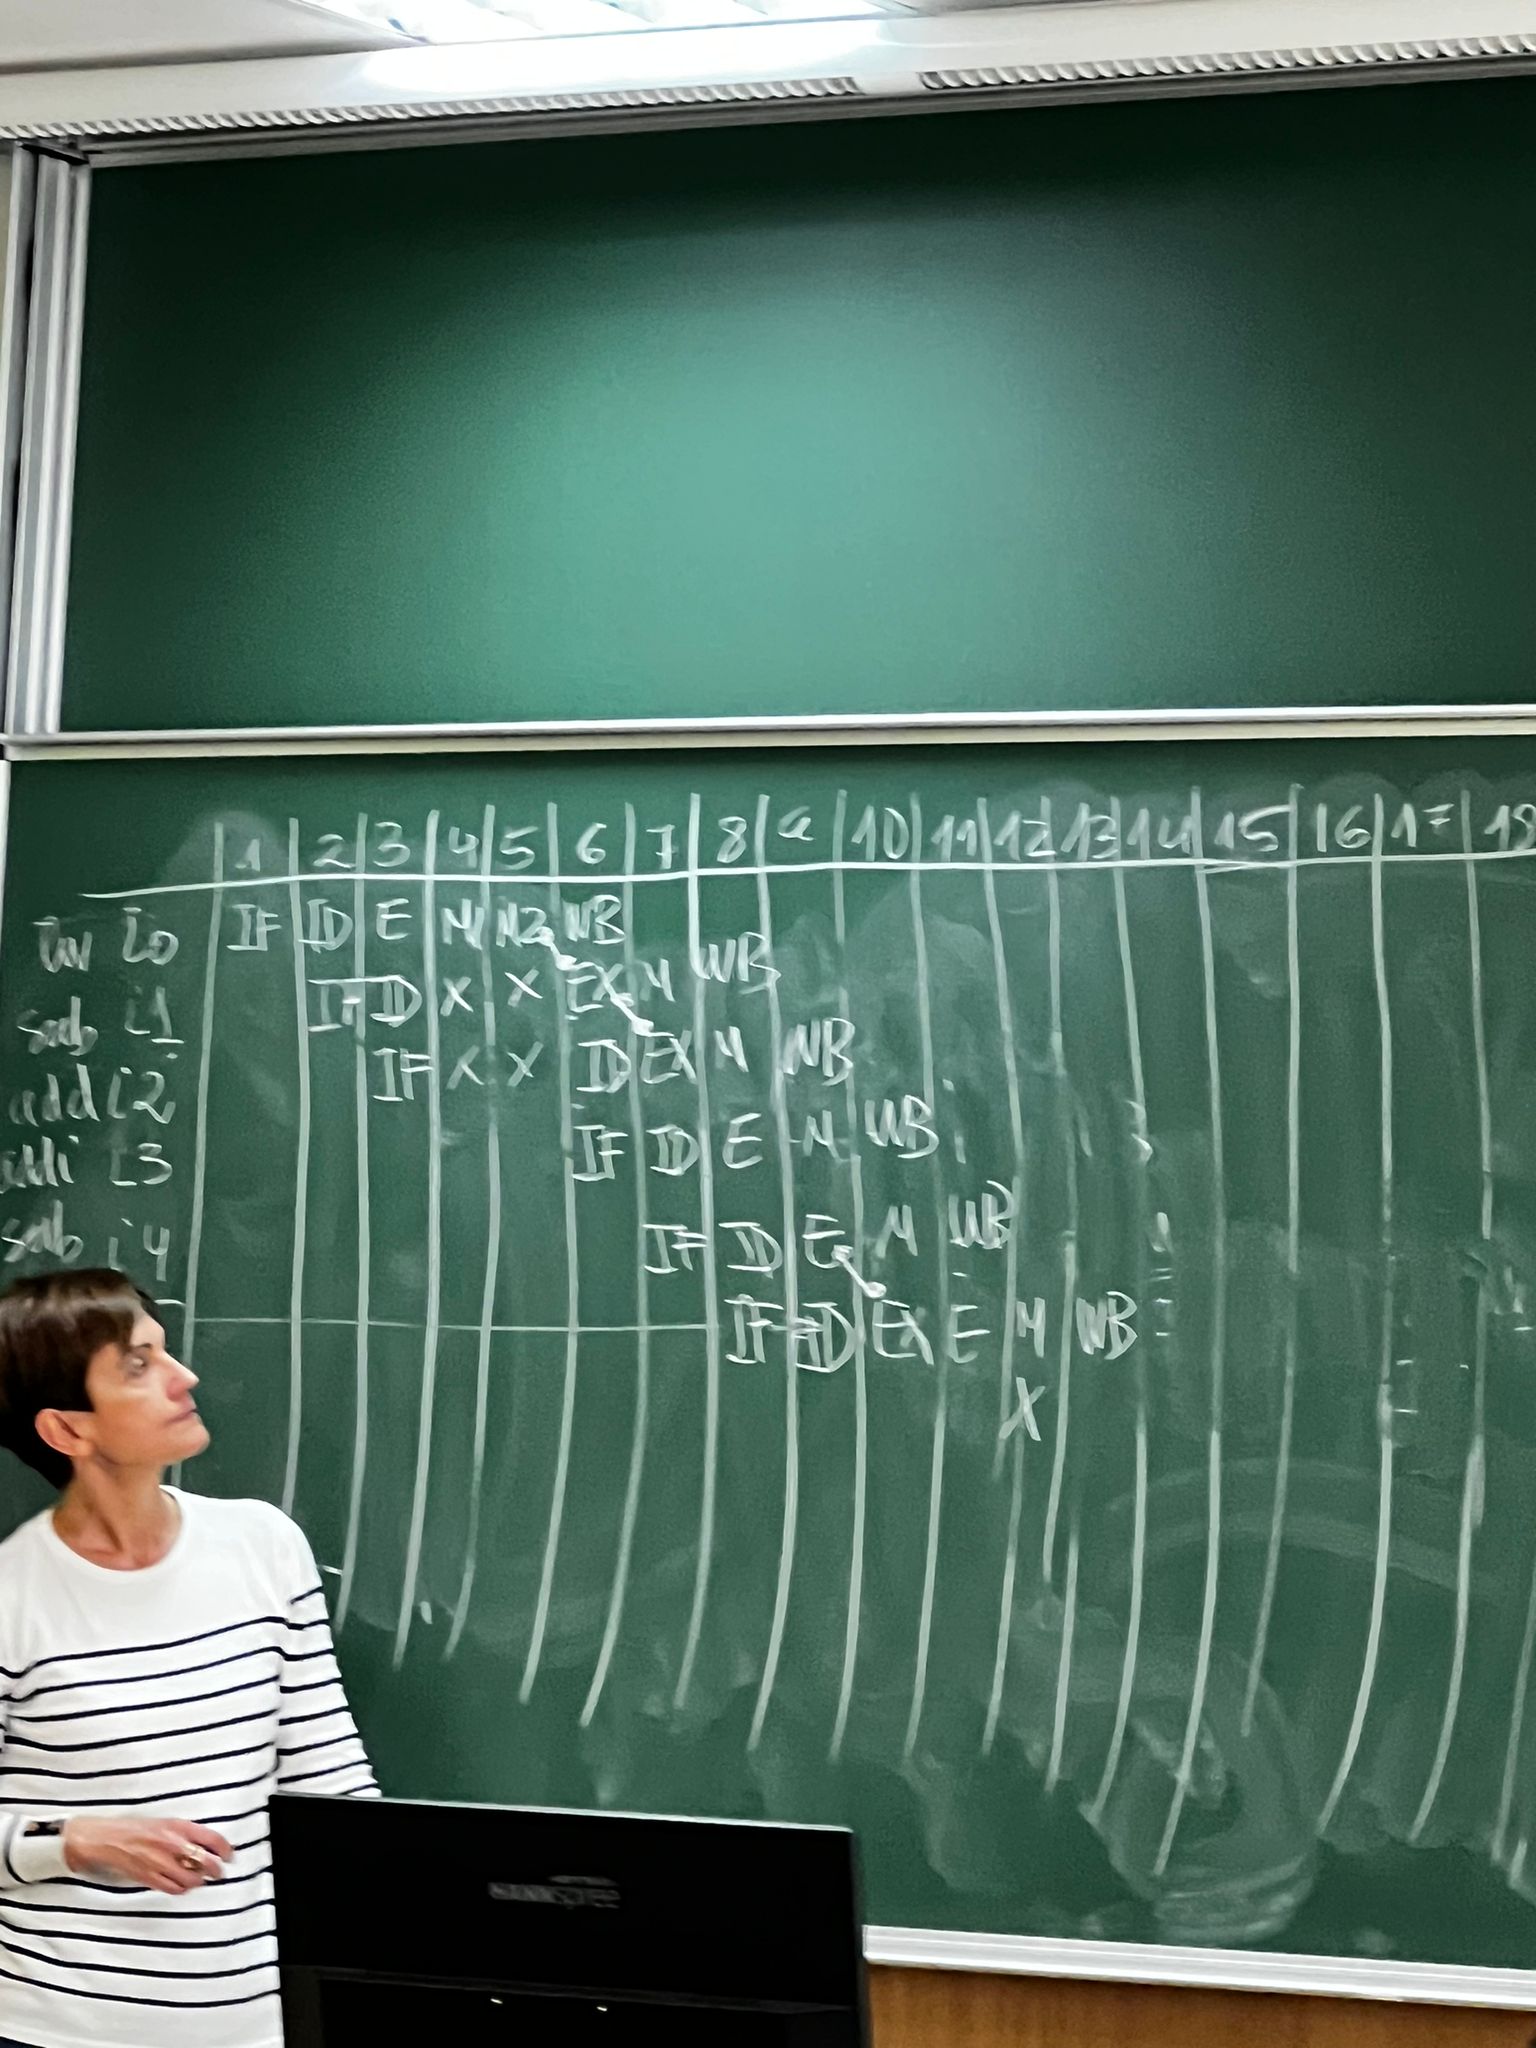 1 2 3 4 5 6 7 8 9 10 11 12 13 14 15 16 17 18
lw i0 IF ID E M1 M2 WB
sub i1 IF ID X X EX M WB
add i2 IF X X ID EX M WB
addi i3 IF ID E M WB
sub i4 IF ID E M WB
IF ID EX E M WB
X